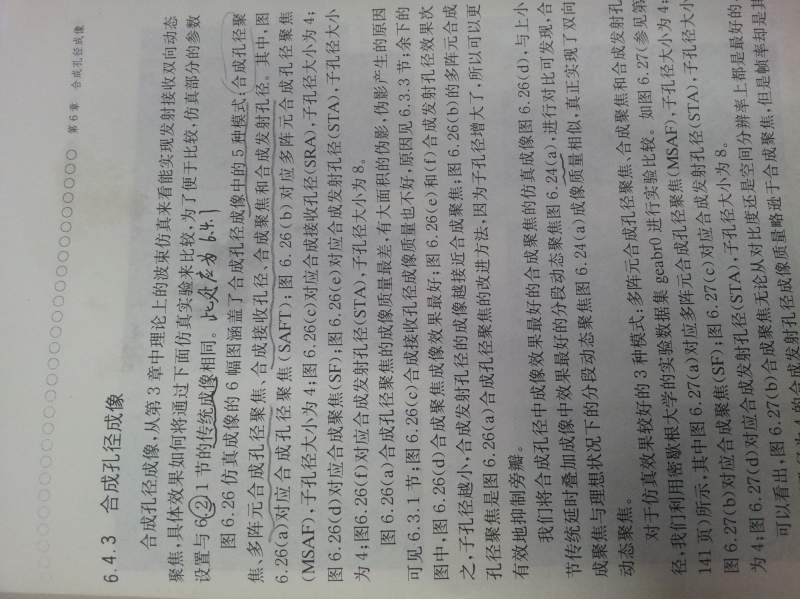 第6章 合成孔径成像
6.4.3 合成孔径成像
合成孔径成像,从第3章中理论上的波束仿真来看能实现发射接收双向动态
聚焦,具体效果如何将通过下面仿真实验来比较,为了便于比较,仿真部分的参数
设置与6.2.1节的传统成像相同。此处应为6.4.1
图6.26仿真成像的6幅图涵盖了合成孔径成像中的5种模式:合成孔径聚
焦、多阵元合成孔径聚焦、合成接收孔径、合成聚焦和合成发射孔径。其中,图
6.26(a)对应合成孔径聚焦(SAFT);图6.26(b)对应多阵元合成孔径聚焦
(MSAF),子孔径大小为4;图6.26(c)对应合成接收孔径(SRA),子孔径大小为4;
图6.26(d)对应合成聚焦(SF);图6.26(e)对应合成发射孔径(STA),子孔径大小
为4;图6.26(f)对应合成发射孔径(STA),子孔径大小为8。
图6.26(a)合成孔径聚焦的成像质量最差,有大面积的伪影,伪影产生的原因
可见6.3.1节;图6.26(c)合成接收孔径成像质量也不好,原因见6.3.3节;余下的
图中,图6.26(d)合成聚焦成像效果最好;图6.26(e)和(f)合成发射孔径效果次
之,子孔径越小,合成发射孔径的成像越接近合成聚焦;图6.26(b)的多阵元合成
孔径聚焦是图6.26(a)合成孔径聚焦的改进方法,因为子孔径增大了,所以可以更
有效地抑制旁瓣。
我们将合成孔径中成像效果最好的合成聚焦的仿真成像图6.26(d),与上小
节传统延时叠加成像中效果最好的分段动态聚焦图6.24(a),进行对比可发现,合
成聚焦与理想状况下的分段动态聚焦图6.24(a)成像质量相似,真正实现了双向
动态聚焦。
对于仿真效果较好的3种模式:多阵元合成孔径聚焦、合成聚焦和合成发射孔
径,我们利用密歇根大学的实验数据集geabr0进行实验比较。如图6.27(参见第
141页)所示,其中图6.27(a)对应多阵元合成孔径聚焦(MSAF),子孔径大小为4;
图6.27(b)对应合成聚焦(SF);图6.27(c)对应合成发射孔径(STA),子孔径大小
为4;图6.27(d)对应合成发射孔径(STA),子孔径大小为8。
可以看出,图6.27(b)合成聚焦无论从对比度还是空间分辨率上都是最好的,
为4的合成发射孔径成像质量略逊于合成聚焦,但是帧率却是其